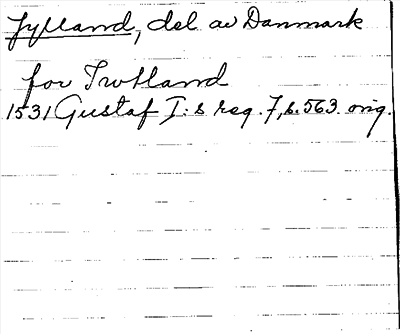 Jylland, del av Danmark
for Jwtland
1531 Gustaf I:s reg. 7, s. 563. orig.